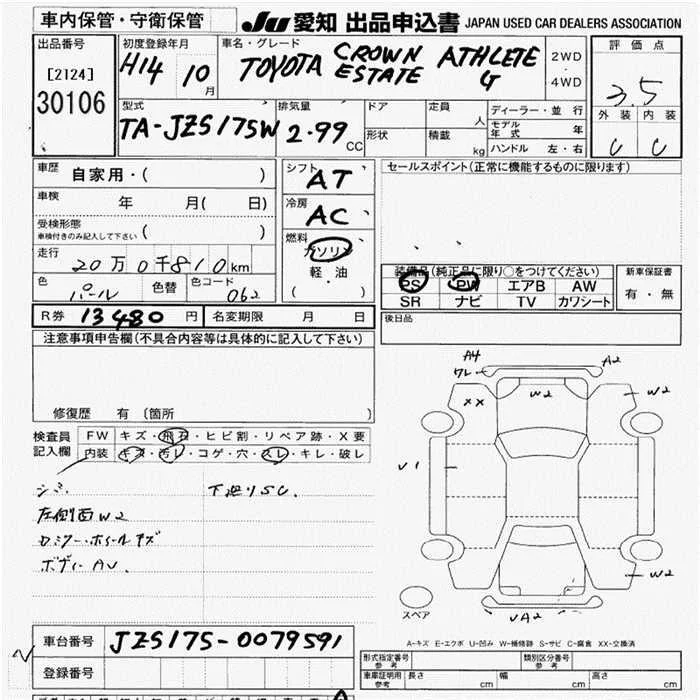 車内保管・守衛保管
JU 愛知 出品申込書 JAPAN USED CAR DEALERS ASSOCIATION
出品番号
[2124]
30106
初度登録年月
H14 10月
車名・グレード
TOYOTA CROWN ESTATE ATHLETE G
2WD・4WD
評価点
3.5
外装 内装
C C
型式
TA-JZS175W
排気量
2.99 CC
ドア
形状
定員 人
積載 kg
ディーラー・並行
モデル年式 年
ハンドル 左・右
車歴
自家用・( )
車検 年 月( 日)
受検形態
車検付きのみ記入して下さい ( )
走行
20万0千810km
色 パール 色替 色コード 062
シフト
AT
冷房
AC
燃料
ガソリン
軽油
( )
セールスポイント(正常に機能するものに限ります)
装備品(純正品に限り○をつけてください)
PS PW エアB AW
SR ナビ TV カワシート
新車保証書
有・無
R券 13480円 名変期限 月 日
後日品
注意事項申告欄(不具合内容等は具体的に記入して下さい)
修復歴 有〔箇所 〕
検査員記入欄
FW キズ・飛石・ヒビ割・リペア跡・X要
内装 キズ・汚レ・コゲ・穴・スレ・キレ・破レ
シミ 下廻りSC.
左側面W2
ボディーAU.
A4
ワレ
A2
XX
W2
W2
V1
W2
UA2
スペア
A-キズ E-エクボ U-凹み W-補修跡 S-サビ C-腐食 XX-交換済
車台番号 JZS175-0079591
登録番号
形式指定番号 参考
類別区分番号 参考
車庫証明用 参考 長さ cm 幅 cm 高さ cm